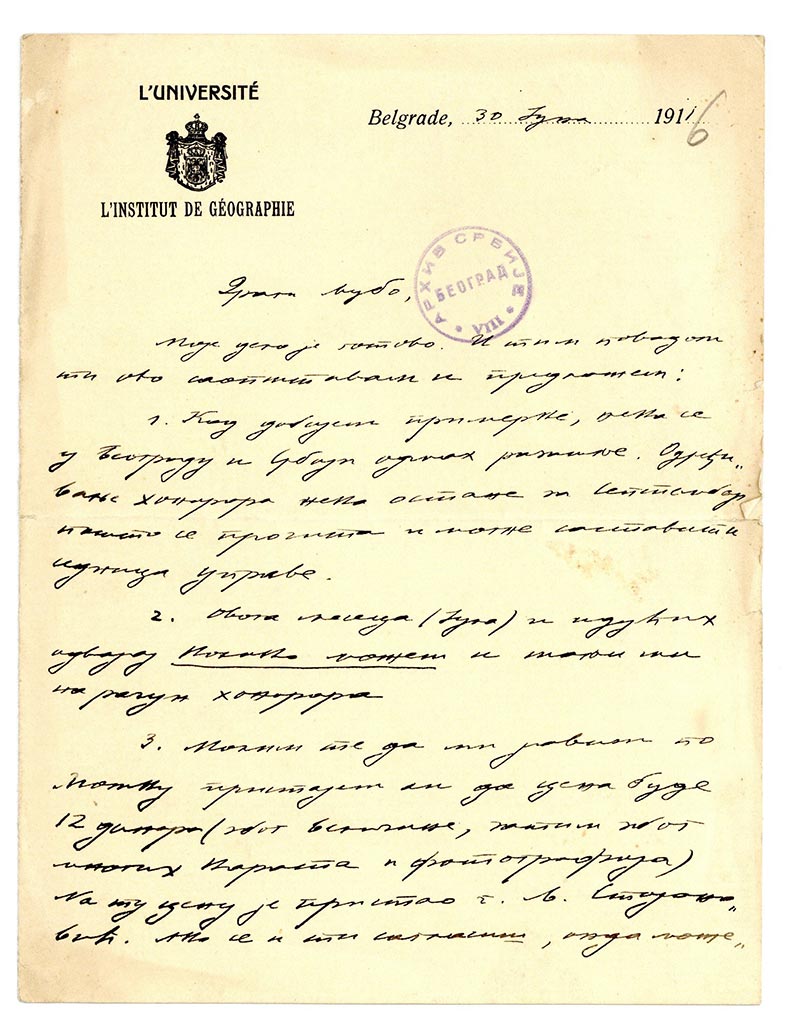 L'UNIVERSITÉ
L'INSTITUT DE GÉOGRAPHIE
Belgrade, 30 Јуна 1911
6
АРХИВ СРБИЈЕ
БЕОГРАД
VIII
Драги Љубо,
Моје дело је готово. И тим поводом
ти ово саопштавам и предлажем:
1. Кад добијем примерке, нека се
у Београду и Србији одмах разашље. Одређи„
вање хонорара нека остане за Септембар
пошто се прочита и може саставити
седница управе.
2. Овога месеца (Јула) и идућих
одвајај колико можеш и шаљи ми
на рачун хонорара
3. Молим те да ми јавиш по
Мошку пристајеш ли да цена буде
12 динара (због величине, затим због
многих карата и фотографија)
На ту цену је пристао г. Љ. Стојано„
вић. Ако се и ти сагласиш, онда може„